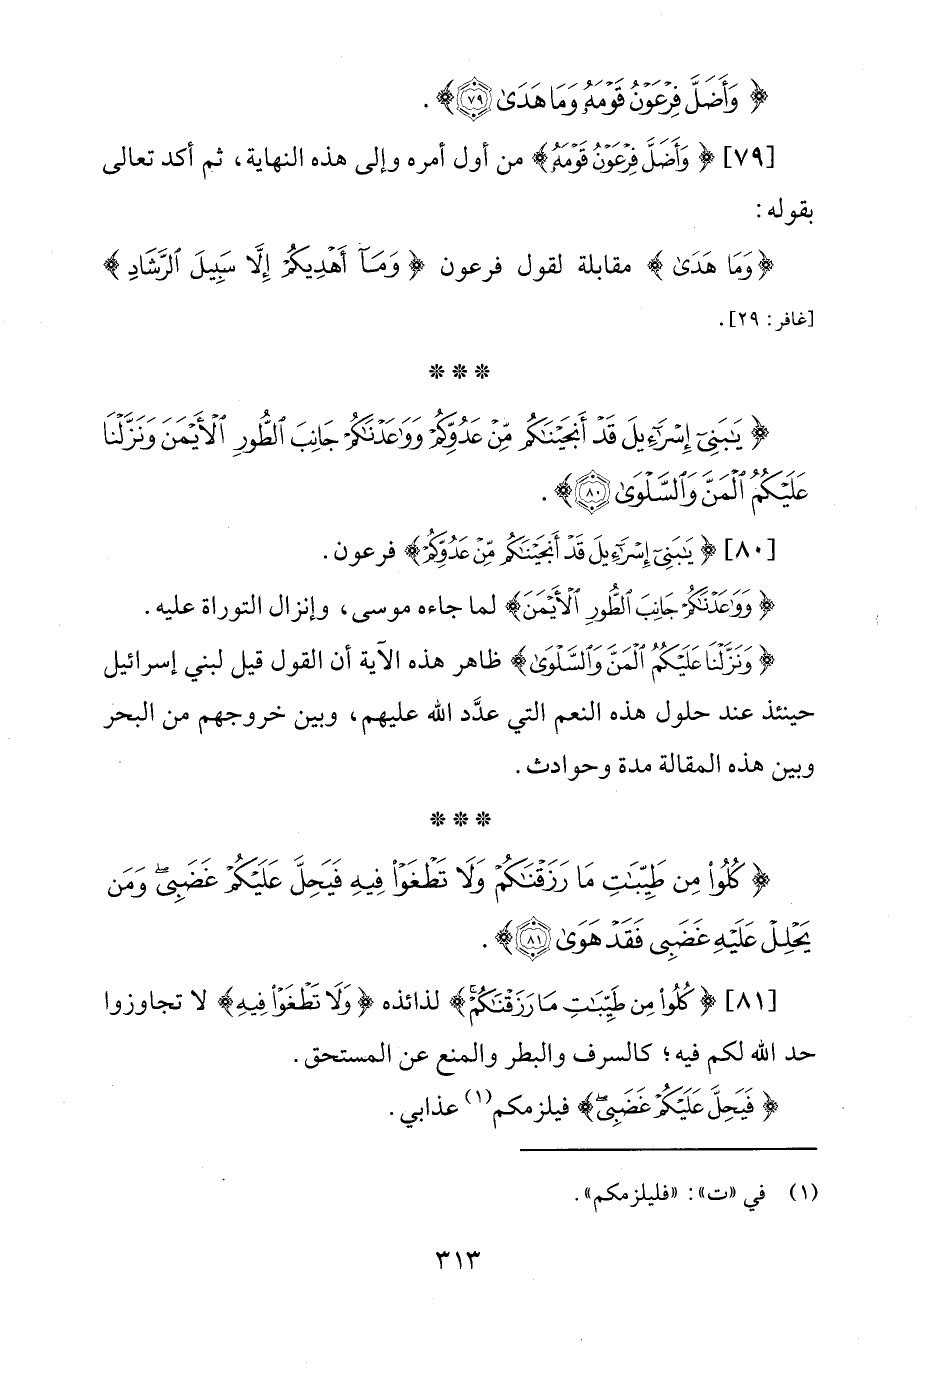 ﴿ وَأَضَلَّ فِرْعَوْنُ قَوْمَهُۥ وَمَا هَدَىٰ ٧٩ ﴾ .
[٧٩] ﴿ وَأَضَلَّ فِرْعَوْنُ قَوْمَهُۥ ﴾ من أول أمره وإلى هذه النهاية، ثم أكد تعالى
بقوله:
﴿ وَمَا هَدَىٰ ﴾ مقابلة لقول فرعون ﴿ وَمَآ أَهْدِيكُمْ إِلَّا سَبِيلَ ٱلرَّشَادِ ﴾
[غافر: ٢٩].
* * *
﴿ يَٰبَنِىٓ إِسْرَٰٓءِيلَ قَدْ أَنجَيْنَٰكُم مِّنْ عَدُوِّكُمْ وَوَٰعَدْنَٰكُمْ جَانِبَ ٱلطُّورِ ٱلْأَيْمَنَ وَنَزَّلْنَا
عَلَيْكُمُ ٱلْمَنَّ وَٱلسَّلْوَىٰ ٨٠ ﴾ .
[٨٠] ﴿ يَٰبَنِىٓ إِسْرَٰٓءِيلَ قَدْ أَنجَيْنَٰكُم مِّنْ عَدُوِّكُمْ ﴾ فرعون.
﴿ وَوَٰعَدْنَٰكُمْ جَانِبَ ٱلطُّورِ ٱلْأَيْمَنَ ﴾ لما جاءه موسى، وإنزال التوراة عليه.
﴿ وَنَزَّلْنَا عَلَيْكُمُ ٱلْمَنَّ وَٱلسَّلْوَىٰ ﴾ ظاهر هذه الآية أن القول قيل لبني إسرائيل
حينئذ عند حلول هذه النعم التي عدَّد الله عليهم، وبين خروجهم من البحر
وبين هذه المقالة مدة وحوادث.
* * *
﴿ كُلُوا۟ مِن طَيِّبَٰتِ مَا رَزَقْنَٰكُمْ وَلَا تَطْغَوْا۟ فِيهِ فَيَحِلَّ عَلَيْكُمْ غَضَبِى ۖ وَمَن
يَحْلِلْ عَلَيْهِ غَضَبِى فَقَدْ هَوَىٰ ٨١ ﴾ .
[٨١] ﴿ كُلُوا۟ مِن طَيِّبَٰتِ مَا رَزَقْنَٰكُمْ ﴾ لذائذه ﴿ وَلَا تَطْغَوْا۟ فِيهِ ﴾ لا تجاوزوا
حد الله لكم فيه؛ كالسرف والبطر والمنع عن المستحق.
﴿ فَيَحِلَّ عَلَيْكُمْ غَضَبِى ۖ ﴾ فيلزمكم(١) عذابي.
(١) في «ت»: «فليلزمكم».
٣١٣